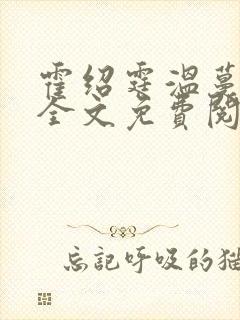 霍绍霆温蔓
全文免費閱
忘记呼吸的猫